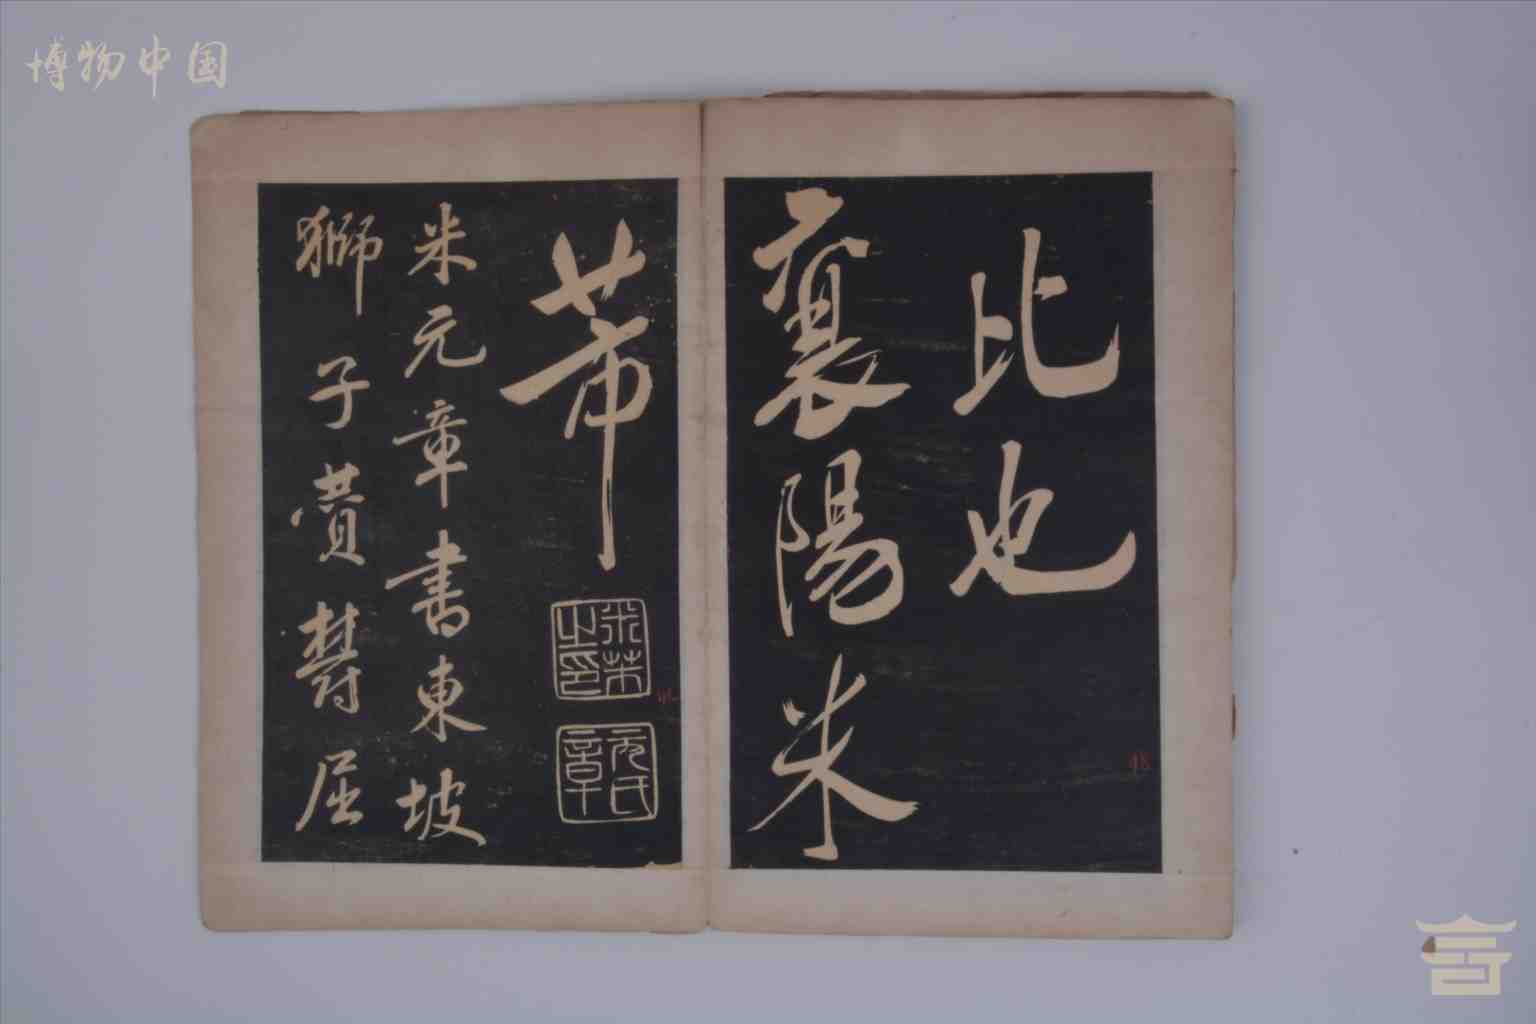 博物中国
比也
襄陽米
芾
米芾之印
元章氏
米元章書東坡
獅子贊鬱屈
48